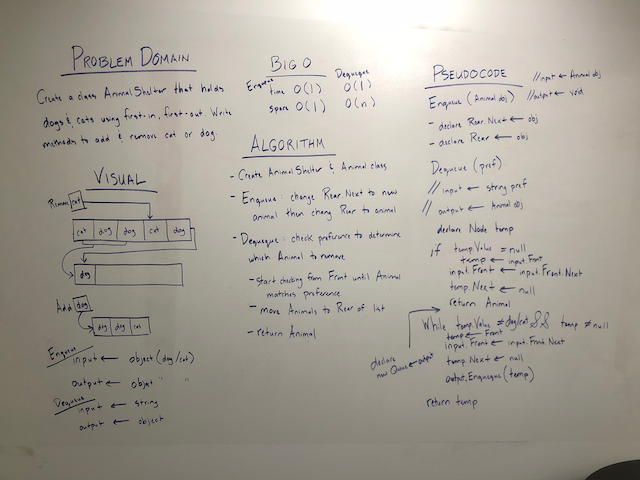 PROBLEM DOMAIN
Create a class AnimalShelter that holds
dogs & cats using first-in, first-out. Write
methods to add & remove cat or dog.
VISUAL
Remove cat
cat dog dog cat dog
dog
Add dog
dog dog cat
Enqueue
input ← object (dog/cat)
output ← objet " "
Dequeue
input ← string
output ← object
BIG O
Enqueue Dequeque
time O(1) O(1)
space O(1) O(n)
ALGORITHM
- Create AnimalShelter & Animal class
- Enqueue: change Rear.Next to new
animal then chang Rear to animal
- Dequeque: check preference to determine
which Animal to remove
- start checking from Front until Animal
matches preference
- move Animals to Rear of list
- return Animal
PSEUDOCODE
//input ← Animal obj
Enqueue (Animal obj) //output ← void
- declare Rear.Next ← obj
- declare Rear ← obj
Dequeue (pref)
// input ← string pref
// output ← Animal obj
declare Node temp
if temp.Value = null
temp ← input.Front
input.Front ← input.Front.Next
temp.Next ← null
return Animal
While temp.Value ≠ dog/cat && temp ≠ null
temp ← Front
input.Front ← input.Front.Next
temp.Next ← null
output.Enqueque(temp)
return temp
declare
new Queue ← output